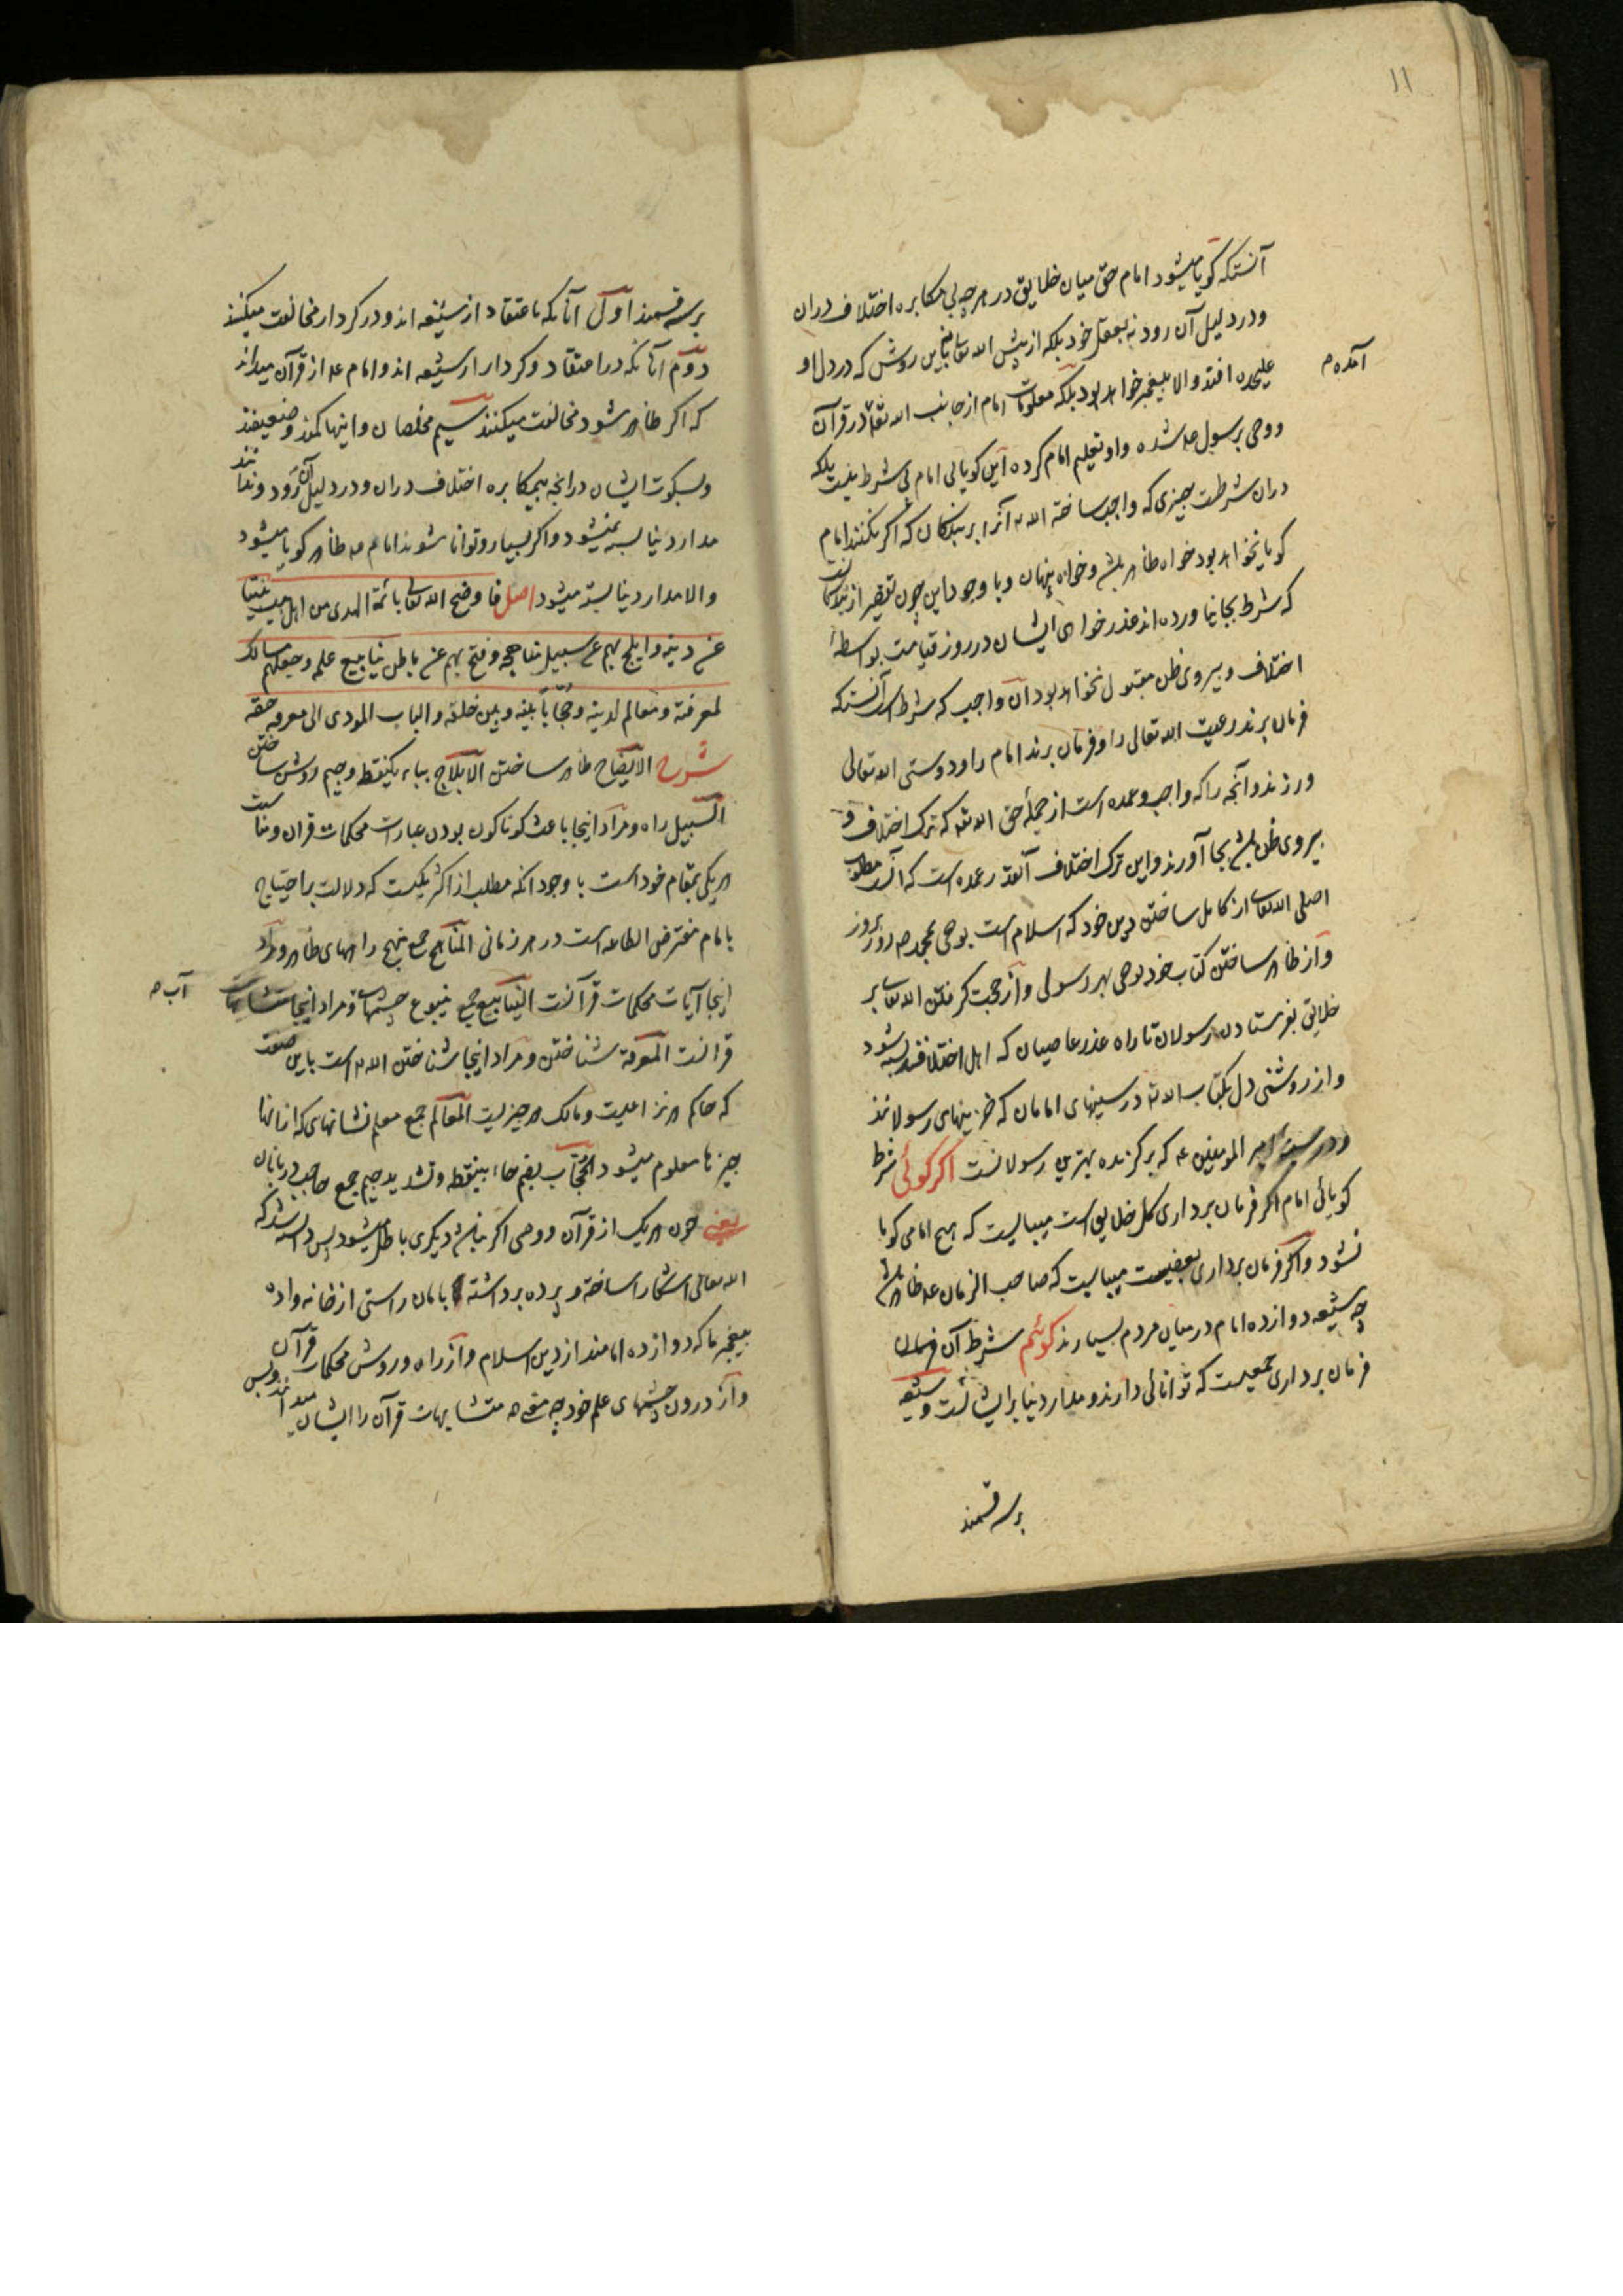 ۱۱
آنستکه کویا میشود امام حق میان خلایق در هر چه بی مکابره اختلاف دران
ودر دلیل آن رود نه بعقل خود بلکه از پیش الله تعا باین روش که در دل او
علیحده افتد والا پیغمبر خواهد بود بلکه معلومات امام از جانب الله تعه در قرآن
آمده م
ووحی برسول عم شده واو تعلیم امام کرده این کویایی امام بی شرط نیست بلکه
دران شرطست چیزی که واجب ساخته الله آنرا بر بندکان که اکر نکنند امام
کویا نخواهد بود خواه ظاهر باشد وخواه پنهان وبا وجود این چون تقصیر از
که شرط بجا نیاورده اند عذر خواهی ایشان در روز قیامت بواسطهٔ
اختلاف وپیروی ظن مقبول نخواهد بود آن واجب که شرط است آنستکه
فرمان برند رعیت الله تعالی را وفرمان برند امام را ودوستی الله تعالی
ورزند وآنچه را که واجب وعمده است از جملهٔ حق الله تعه که ترک اختلاف و
پیروی ظن باشد بجا آورند واین ترک اختلاف آنقدر عمده است که آنست مطلوب
اصلی الله تعا از کامل ساختن دین خود که اسلام است بوحی بمحمد ص روز بروز
واز ظاهر ساختن کتاب خود بوحی بهر رسولی واز حجت کرفتن الله تعا بر
خلایق بفرستادن رسولان تا راه عذر عاصیان که اهل اختلافند بسته شود
واز روشنی دل بکتاب الله تعه در سینهای امامان که خزینهای رسولانند
ودر سینه امیر المومنین عم که برکزیده بهترین رسولانست اکر کوئی شرط
کویائی امام اکر فرمان برداری کل خلایق است میبایست که هیچ امامی کویا
نشود واکر فرمان برداری بعضیست میبایست که صاحب الزمان عم ظاهر باشد
چه شیعه دوازده امام در میان مردم بسیارند کوئیم شرط آن فرمان
فرمان برداری جمعیست که توانائی دارند ومدار دنیا بر ایشانست وشیعه
بر سه قسمند
بر سه قسمند اول آنانکه باعتقاد از شیعه اند ودر کردار مخالفت میکنند
دوم آنانکه در اعتقاد وکردار از شیعه اند وامام عم از قرآن میداند
که اکر ظاهر شود مخالفت میکنند سیم مخلصان واینها کمند وضعیفند
وبسکوت ایشان درانچه بیمکابره اختلاف دران ودر دلیل آن رود وندانند
مدار دنیا بسته نمیشود واکر بسیار وتوانا شوند امام عم ظاهر کویا میشود
والا مدار دنیا بسته میشود اصل فاوضح الله تعا بائمة الهدی من اهل بیت نبینا
عن دینه وابلج بهم عن سبیل مناهجه وفتح بهم عن باطن ینابیع علمه وجعلهم مسالک
لمعرفته ومعالم لدینه وحجابا بینه وبین خلقه والباب المودی الی معرفه حقه
شرح الایضاح ظاهر ساختن الابلاج بباء یکنقطه وجیم روشن ساختن
السبیل راه ومراد اینجا باعث کوناکون بودن عبارات محکمات قرآن ومناسبت
هر یکی بمقام خود است با وجود انکه مطلب از اکثر یکیست که دلالت بر احتیاج
بامام مفترض الطاعه است در هر زمانی المناهج جمع منهج راههای ظاهر ومراد
اینجا آیات محکمات قرآنست الینابیع جمع ینبوع چشمهای ومراد اینجا متشابهات
آب م
قرآنست المعرفة شناختن ومراد اینجا شناختن الله است باین صفت
که حاکم هر نزاعیست ومالک هر چیزیست المعالم جمع معلم نشانهای که ازانها
چیزها معلوم میشود الحجاب بضم حاء بینقطه وتشدید جیم جمع حاجب دربانان
یعنی چون هر یک از قرآن ووحی اکر نباشد دیکری باطل میشود پس دانسته شد که
الله تعالی آشکارا ساخته وپرده برداشته بامامان راستی از خانه واده
پیغمبر ما که دوازده امامند از دین اسلام واز راه وروشن محکمات قرآن
واز درون چشمهای علم خود چه معنی متشابهات قرآن را ایشان میدانند وبس